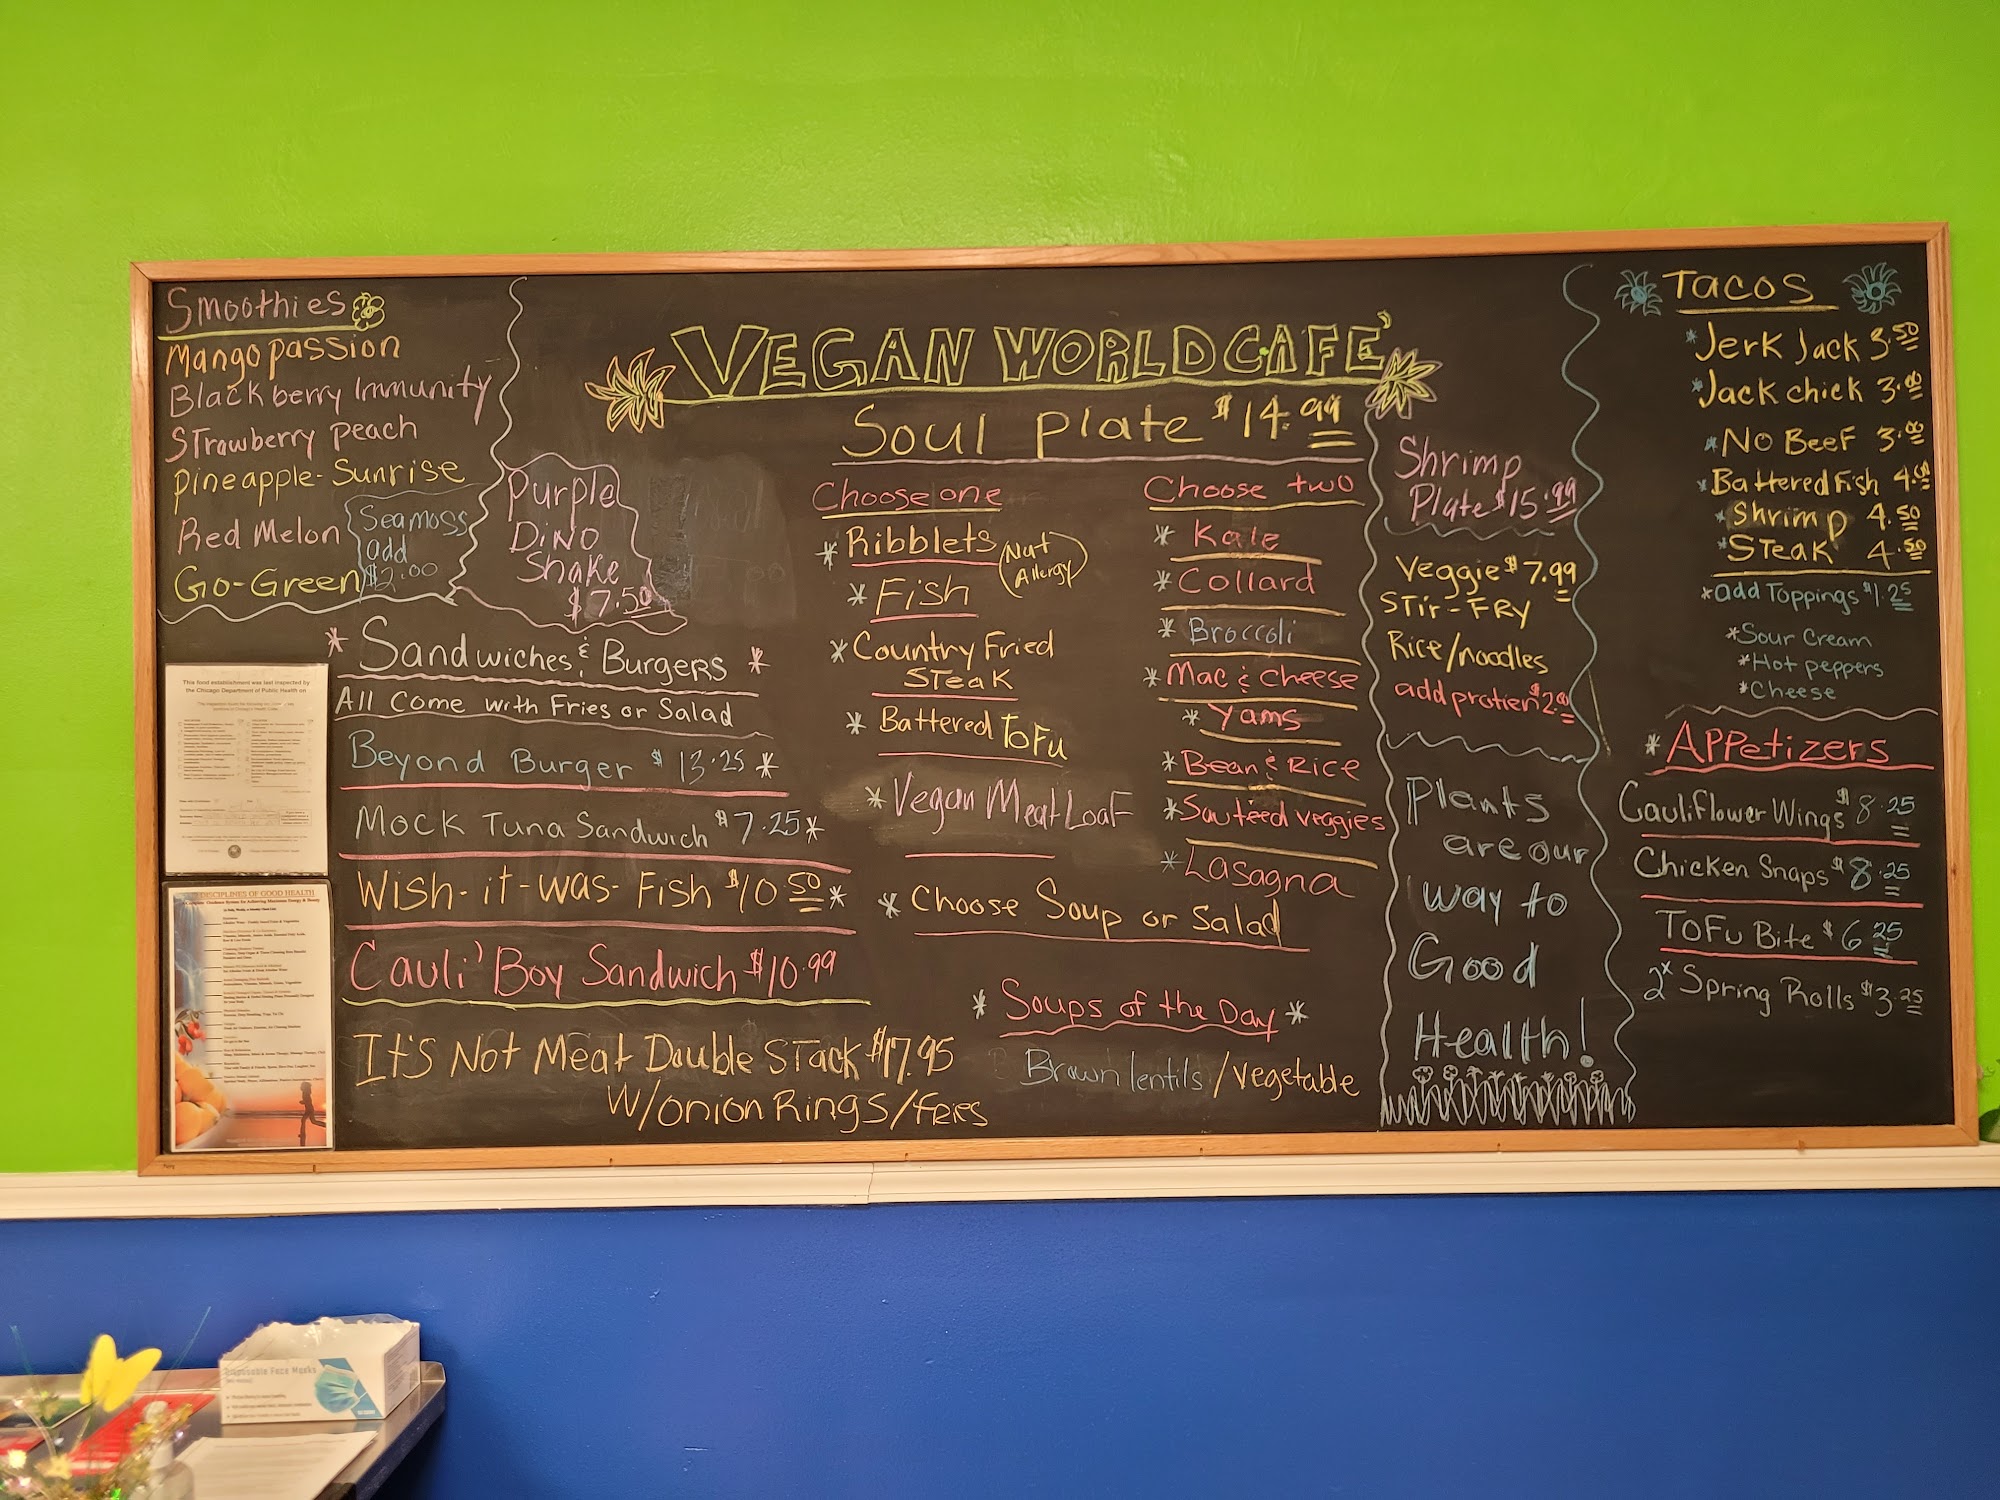 Smoothies
Mango passion
Blackberry Immunity
Strawberry peach
Pineapple-Sunrise
Red Melon
Go-Green
Seamoss
add
$2.00
Purple
Dino
Shake
$7.50
VEGAN WORLD CAFE'
Soul Plate $14.99
Choose one
* Ribblets
(Nut Allergy)
* Fish
* Country Fried
Steak
* Battered ToFu
* Vegan Meat Loaf
* Choose Soup or Salad
Choose two
* Kale
* Collard
* Broccoli
* Mac & Cheese
* Yams
* Bean & Rice
* Sautéed veggies
* Lasagna
* Soups of the Day *
Brown lentils/vegetable
* Sandwiches & Burgers *
All Come with Fries or Salad
Beyond Burger $13.25 *
Mock Tuna Sandwich $7.25 *
Wish-it-was-Fish $10.50 *
Cauli'Boy Sandwich $10.99
It's Not Meat Double Stack $17.95
W/onion Rings/feies
Shrimp
Plate $15.99
Veggie $7.99
Stir-Fry
Rice/noodles
add protien $2.00
Plants
are our
way to
Good
Health!
Tacos
* Jerk Jack 3.50
* Jack chick 3.00
* No Beef 3.00
* Battered Fish 4.00
* Shrimp 4.50
* Steak 4.50
* add Toppings $1.25
* Sour Cream
* Hot peppers
* Cheese
* Appetizers
Cauliflower Wings $8.25
Chicken Snaps $8.25
ToFu Bite $6.25
2x Spring Rolls $3.25
This food establishment was last inspected by
the Chicago Department of Public Health on
DISCIPLINES OF GOOD HEALTH
Disposable Face Masks